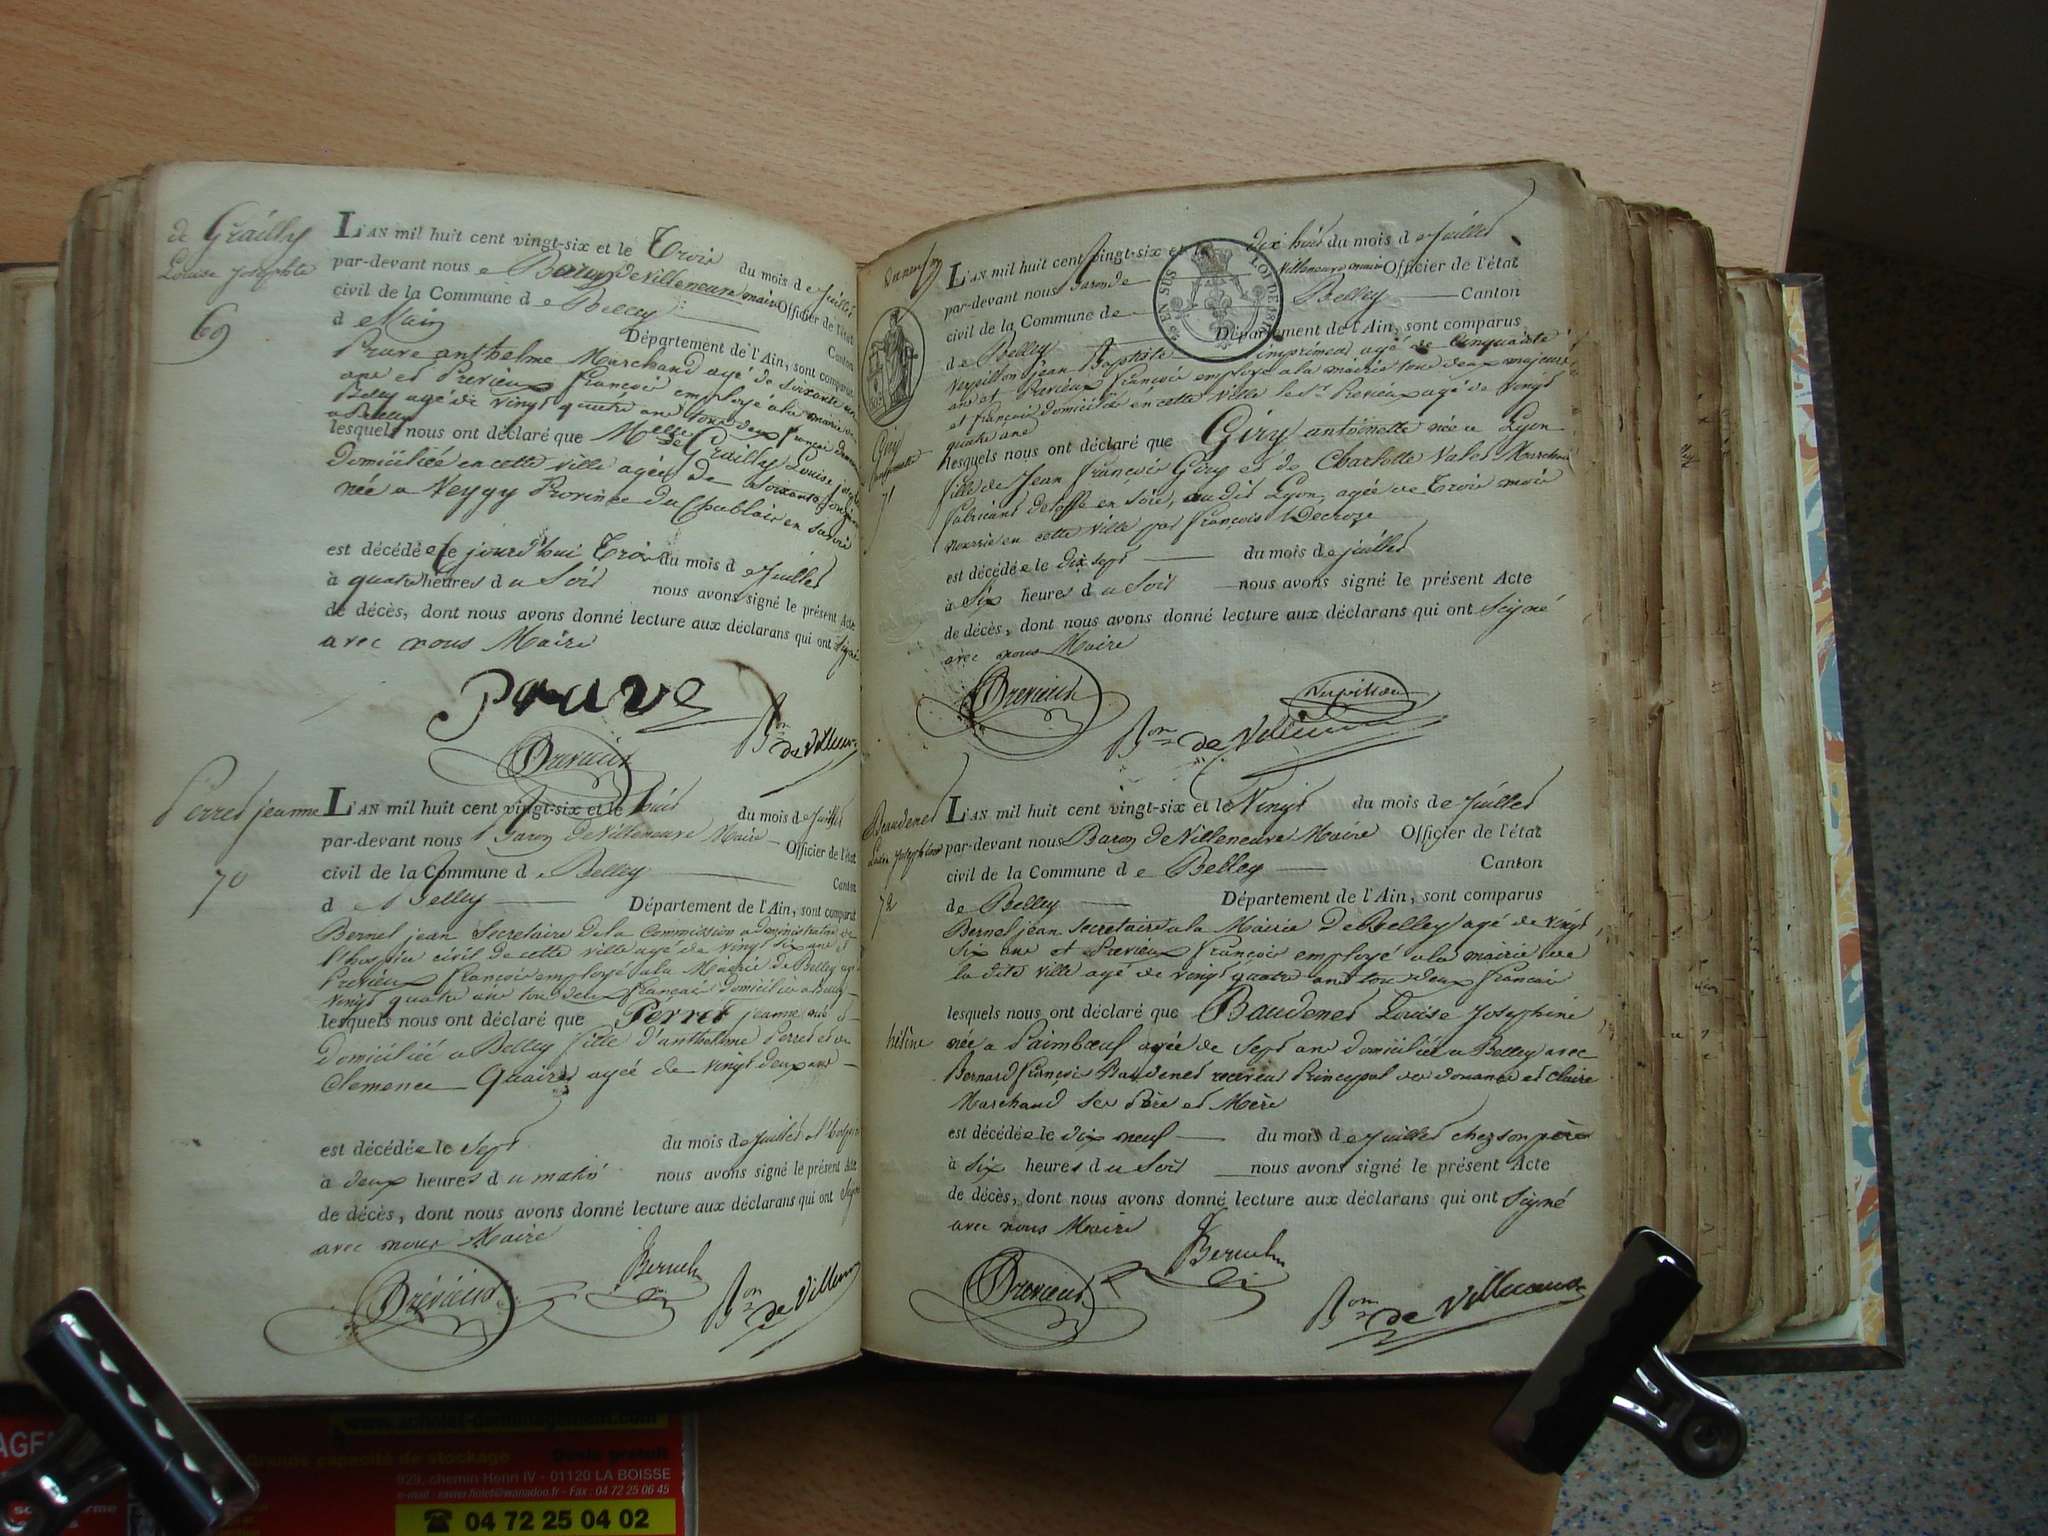 de Grailly
Louise Josephte
69
L'AN mil huit cent vingt-six et le Trois du mois de juillet
par-devant nous Baron de Villeneuve maire Officier de l'état
civil de la Commune de Belley Canton
d Département de l'Ain, sont comparus
Prave anthelme Marchand agé de soixante
ans et Previeux françois employé a la mairie de
Belley agé de vingt quatre ans tous deux françois
a Belley
lesquels nous ont déclaré que Melle de Grailly Louise
Domiciliée en cette ville agée de soixante
née a Veygy Province du Chablais en Savoie
est décédée le jourd'hui Trois du mois de juillet
à quatre heures du Soir nous avons signé le présent Acte
de décès, dont nous avons donné lecture aux déclarans qui ont signé
avec nous Maire
Prave
Previeux
Bon de Villeneuve
Perret jeanne
70
L'AN mil huit cent vingt-six et le huit du mois de juillet
par-devant nous Baron de Villeneuve Maire Officier de l'état
civil de la Commune de Belley Canton
de Belley Département de l'Ain, sont comparus
Bernel jean Secretaire de la Commission administrative de
l'hospice civil de cette ville agé de vingt six ans et
Previeux françois employé a la Mairie de Belley agé
vingt quatre ans tou deux français domicilié a Belley
lesquels nous ont déclaré que Perret jeanne
Domiciliée a Belley fille d'anthelme Perret et de
Clemence agée de vingt deux ans
est décédée le sept du mois de juillet
à deux heures du matin nous avons signé le présent Acte
de décès, dont nous avons donné lecture aux déclarans qui ont Signé
avec nous Maire
Prévieux
Bernel
Bon de Villeneuve
Giry
antoinette
71
L'AN mil huit cent vingt-six et le dix huit du mois de juillet
par-devant nous Baron de Villeneuve maire Officier de l'état
civil de la Commune de Belley Canton
de Belley Département de l'Ain, sont comparus
EN SUS LOI DE 1816
Verpillon jean Baptiste imprimeur agé de Cinquante
ans et Previeux françois employé a la mairie tous deux majeurs
et françois domicilié en cette ville le Sr Previeux agé de vingt
quatre ans
lesquels nous ont déclaré que Giry antoinette née a Lyon
fille de Jean françois Giry et de Charlotte Marchand
fabricant d'étoffe en Soie, audit Lyon, agée de Trois mois
nourrie en cette ville par françois Decroze
est décédée le dix sept du mois de juillet
à Six heures du Soir nous avons signé le présent Acte
de décès, dont nous avons donné lecture aux déclarans qui ont Seigné
avec nous Maire
Previeux
Verpillon
Bon de Villeneuve
Beaudenet
Louise Josephine
72
L'AN mil huit cent vingt-six et le Vingt du mois de juillet
par-devant nous Baron de Villeneuve Maire Officier de l'état
civil de la Commune de Belley Canton
de Belley Département de l'Ain, sont comparus
Bernel jean secretaire a la Mairie De Belley agé de vingt
six ans et Previeux françois employé a la mairie de
la dite ville agé de vingt quatre ans tou deux francais
lesquels nous ont déclaré que Baudenet Louise Josephine
hélène née a Paimbœuf agée de sept ans domiciliée a Belley avec
Bernard françois Baudenet receveur Principal des douanes et claire
Marchand Ses Père et Mère
est décédée le dix neuf du mois de juillet chez son père
à six heures du Soir nous avons signé le présent Acte
de décès, dont nous avons donné lecture aux déclarans qui ont Seigné
avec nous Maire
Previeux
Bernel
Bon de Villeneuve
Grande capacité de stockage Devis gratuit
929, chemin Henri IV - 01120 LA BOISSE
Fax : 04 72 25 06 45
☎ 04 72 25 04 02